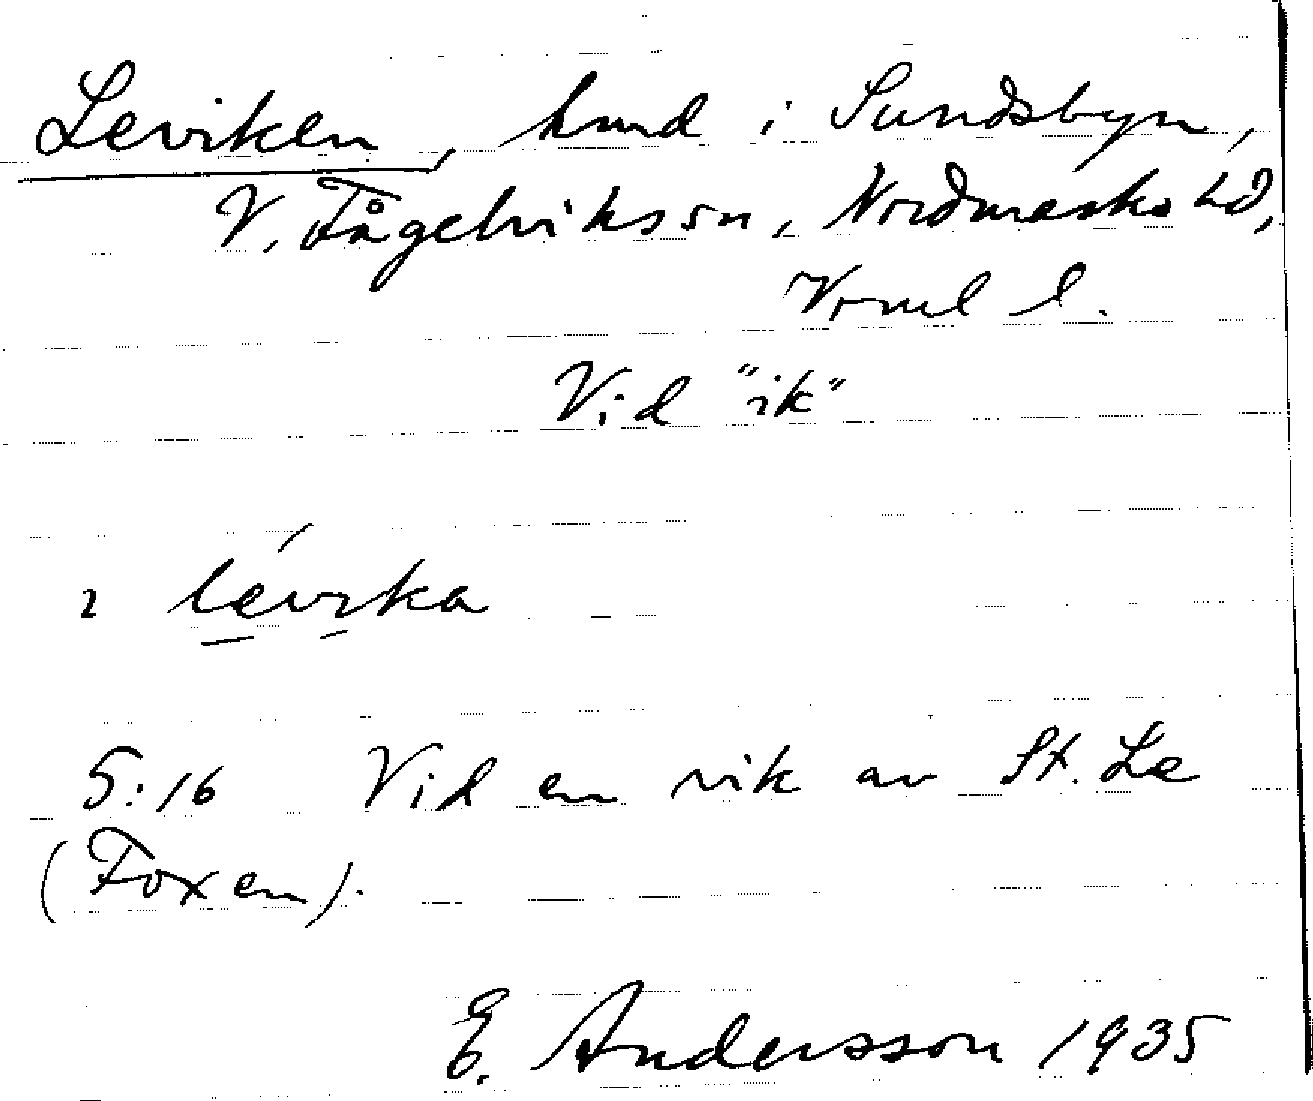 Leviken, hmd i Sundsbyn,
V. Fågelviks sn, Nordmarks hd,
Vrml l.
Vid "ik"
2 lévika
5:16 Vid en vik av St. Le
(Foxen).
E. Andersson 1935